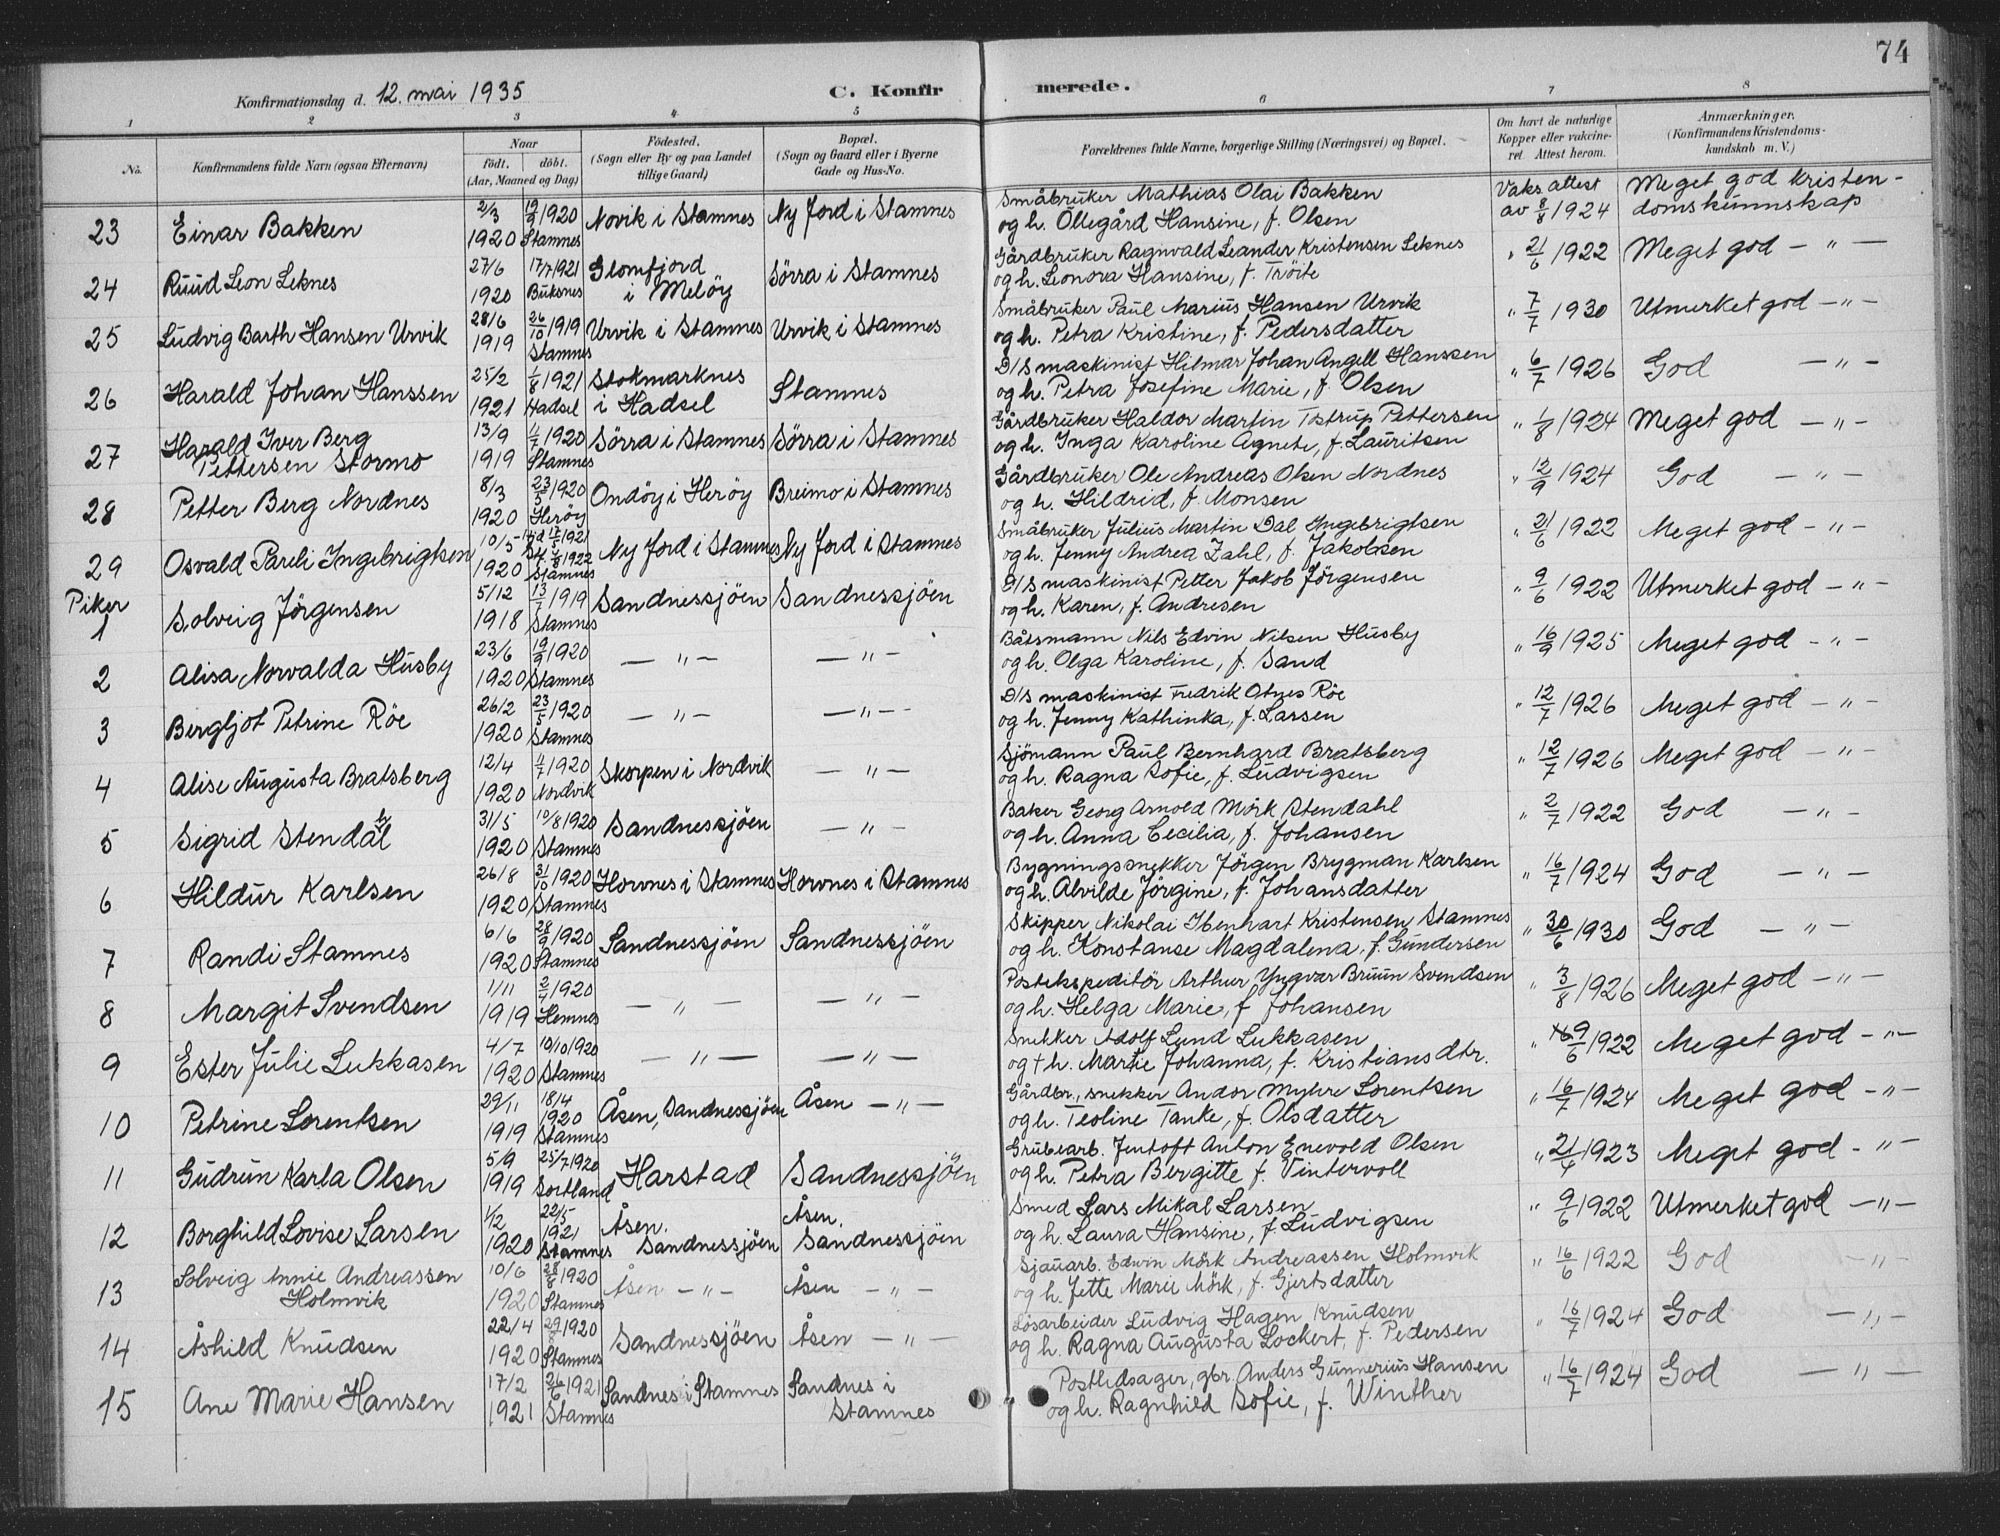 74
Konfirmationsdag d. 12. mai 1935
C. Konfirmerede.
1 2 3 4 5 6 7 8
No.
Konfirmandens fulde Navn (ogsaa Efternavn)
Naar
födt. döbt.
(Aar, Maaned og Dag)
Födested.
(Sogn eller By og paa Landet
tillige Gaard)
Bopæl.
(Sogn og Gaard eller i Byerne
Gade og Hus-No.
Forældrenes fulde Navne, borgerlige Stilling (Næringsvei) og Bopæl.
Om havt de naturlige
Kopper eller vakcine-
ret. Attest herom.
Anmærkninger.
(Konfirmandens Kristendoms-
kundskab m. V.)
23 Einar Bakken 2/3 1920 19/9 1920 Stamnes Novik i Stamnes Ny Jord i Stamnes
Småbruker Mathias Olai Bakken
og h. Ollegård Hansine, f. Olsen
Vaks. attest av 8/8 1924 Meget god kristen-
domskunnskap
24 Ruud Leon Leknes 27/6 1920 17/7 1921 Buksnes Glomfjord i Melöy Sörra i Stamnes
Gårdbruker Ragnvald Leander Kristensen Leknes
og h. Leonora Hansine, f. Tröite
" 21/6 1922 Meget god — " —
25 Ludvig Barth Hansen Urvik 28/6 1919 26/10 1919 Stamnes Urvik i Stamnes Urvik i Stamnes
Småbruker Paul Marius Hansen Urvik
og h. Petra Kristine, f. Pedersdatter
" 7/7 1930 Utmerket god — " —
26 Harald Johan Hanssen 25/2 1921 1/8 1921 Hadsel Stokmarknes i Hadsel Stamnes
D/S maskinist Hilmar Johan Angell Hanssen
og h. Petra Josefine Marie, f. Olsen
" 6/7 1926 God — " —
27 Harald Iver Berg
Pettersen Stormo 13/9 1919 11/7 1920 Stamnes Sörra i Stamnes Sörra i Stamnes
Gårdbruker Haldor Martin Tostrup Pettersen
og h. Inga Karoline Agnete, f. Lauritsen
" 1/8 1924 Meget god — " —
28 Petter Berg Nordnes 8/3 1920 23/5 1920 Heröy Ondöy i Heröy Breimo i Stamnes
Gårdbruker Ole Andreas Olsen Nordnes
og h. Hildrid, f. Monsen
" 12/9 1924 God — " —
29 Osvald Pareli Ingebrigtsen 10/5 1920 17/5 1921 1922 Stamnes Ny Jord i Stamnes Ny Jord i Stamnes
Småbruker Julius Martin Dal Ingebrigtsen
og h. Jenny Andrea Zahl, f. Jakobsen
" 21/6 1922 Meget god — " —
Piker
1 Solveig Jörgensen 5/12 1918 13/7 1919 Stamnes Sandnessjöen Sandnessjöen
D/S maskinist Petter Jakob Jörgensen
og h. Karen, f. Andresen
" 9/6 1922 Utmerket god — " —
2 Alisa Norvalda Husby 23/6 1920 19/9 1920 Stamnes — " — — " —
Båtsmann Nils Edvin Nilsen Husby
og h. Olga Karoline, f. Sand
" 16/9 1925 Meget god — " —
3 Bergljot Petrine Röe 26/2 1920 23/5 1920 Stamnes — " — — " —
D/S maskinist Fredrik Otnes Röe
og h. Jenny Kathinka, f. Larsen
" 12/7 1926 Meget god — " —
4 Alise Augusta Bratsberg 12/4 1920 11/7 1920 Nordvik Skorpen i Nordvik — " —
Sjömann Paul Bernhard Bratsberg
og h. Ragna Sofie, f. Ludvigsen
" 12/7 1926 Meget god — " —
5 Sigrid Stendahl 31/5 1920 10/8 1920 Stamnes Sandnessjöen — " —
Baker Georg Arnold Mörk Stendahl
og h. Anna Cecilia, f. Johansen
" 2/7 1922 God — " —
6 Hildur Karlsen 26/8 1920 31/10 1920 Stamnes Horvnes i Stamnes Horvnes i Stamnes
Bygningssnekker Jörgen Brygman Karlsen
og h. Alvilde Jörgine, f. Johansdatter
" 16/7 1924 God — " —
7 Randi Stamnes 6/6 1920 28/9 1920 Stamnes Sandnessjöen Sandnessjöen
Skipper Nikolai Ibenhart Kristensen Stamnes
og h. Konstanse Magdalena, f. Gundersen
" 30/6 1930 God — " —
8 Margit Svendsen 1/11 1919 2/4 1920 Hemnes — " — — " —
Postekspeditör Arthur Yngvar Bruun Svendsen
og h. Helga Marie, f. Johansen
" 3/8 1926 Meget god — " —
9 Ester Julie Lukkasen 4/7 1920 10/10 1920 Stamnes — " — — " —
Snekker Adolf Lund Lukkasen
og † h. Martie Johanna, f. Kristiansdtr.
" 9/6 1922 Meget god — " —
10 Petrine Lorentsen 29/11 1919 18/4 1920 Stamnes Åsen, Sandnessjöen Åsen — " —
Gårdbr., snekker Andor Myhre Lorentsen
og h. Teoline Tanke, f. Olsdatter
" 16/7 1924 Meget god — " —
11 Gudrun Karla Olsen 5/9 1919 25/7 1920 Sortland Harstad Sandnessjöen
Grubearb. Jentoft Anton Enevold Olsen
og h. Petra Bergitte f. Vintervoll
" 21/4 1923 Meget god — " —
12 Borghild Lovise Larsen 1/12 1920 22/5 1921 Stamnes Åsen. Sandnessjöen Åsen. Sandnessjöen
Smed Lars Mikal Larsen
og h. Laura Hansine, f. Ludvigsen
" 9/6 1922 Utmerket god — " —
13 Solveig Annie Andreassen
Holmvik 10/6 1920 28/8 1920 Stamnes Åsen — " — Åsen — " —
Sjauarb. Edwin Mörk Andreassen Holmvik
og h. Jette Marie Mörk, f. Gjertsdatter
" 16/6 1922 God — " —
14 Åshild Knudsen 22/4 1920 29/8 1920 Stamnes Sandnessjöen Åsen — " —
Lösarbeider Ludvig Hagen Knudsen
og h. Ragna Augusta Lockert, f. Pedersen
" 16/7 1924 God — " —
15 Ane Marie Hansen 17/2 1921 26/6 1921 Stamnes Sandnes i Stamnes Sandnes i Stamnes
Postledsager, gbr. Anders Gunnerius Hansen
og h. Ragnhild Sofie, f. Winther
" 16/7 1924 God — " —